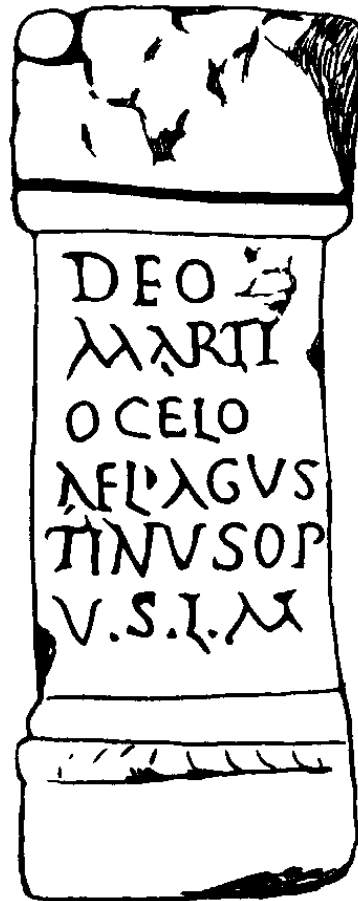 DEO
MARTI
OCELO
AEL'AGVS
TINVSOP
V.S.L.M